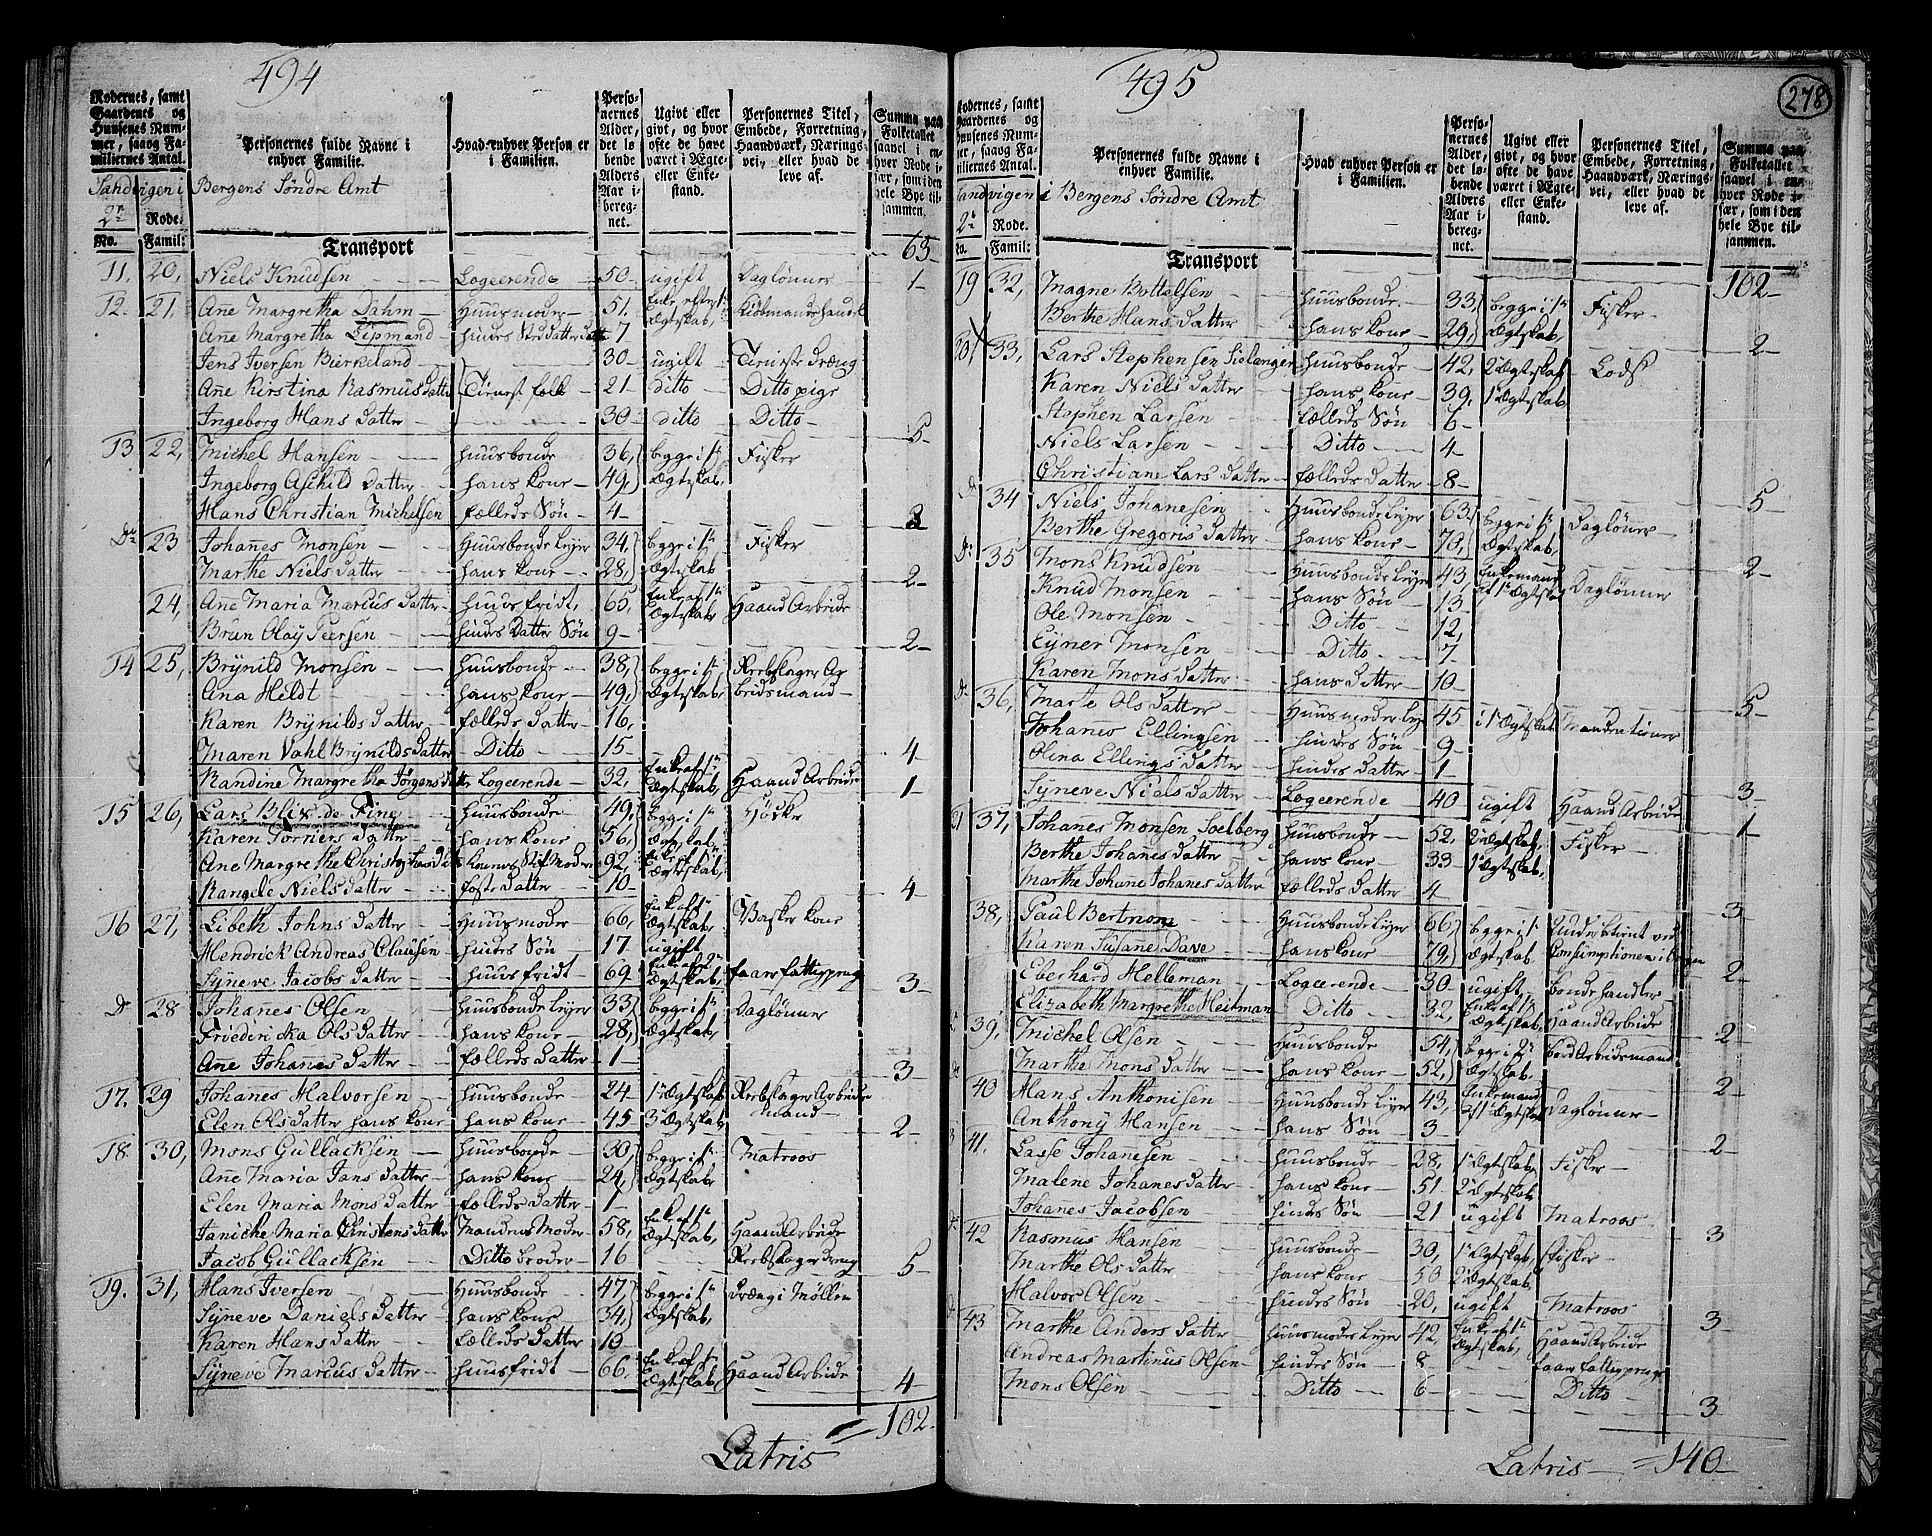 494
Rodernes, samt Gaardenes og Huusenes Nummer, saavog Familiernes Antal.
Personernes fulde Navne i enhver Familie.
Hvad enhver Person er i Familien.
Personernes Alder, det løbende Alders Aar iberegnet.
Ugivt eller givt, og hvor ofte de have været i Ægte- eller Enkestand.
Personernes Titel, Embede, Forretning, Haandværk, Næringsvei, eller hvad de leve af.
Summa paa Folketallet saavel i enhver Rode især, som i den hele Bye tilsammen.
Sandvigen i Bergens Søndre Amt
2de Rode:
No. Famil:
Transport 63
11. 20, Niels Knudsen Logeerende 50 ugift Dagløner 1
12. 21, Ane Margretha Dahm Huusmoder 51. Enke efter 1ste Ægteskab, Kiøbmandshandel
Ane Margretha Lipmand hindes Datter 7
Jens Iversen Birkeland 30 ugift Tieniste Dræng
Ane Kirstina Rasmusdatter Tienest folk 21 Ditto Ditto pige
Ingeborg Hans datter 30 ditto Ditto 5
13 22, Michel Hansen Huusbonde 36, begge i 1ste Fisker
Ingeborg Aschild datter hans kone 49, Ægteskab,
Hans Christian Michelsen fælleds Søn 4 3
Do 23 Johanes Monsen Huusbonde Leyer 34, begge i 1ste Fisker
Marthe Niels datter hans kone 28, Ægteskab 2
24, Ane Maria Marcus datter huus fridt, 65, Enke af 1ste Ægteskab Haand Arbeide
Brun Olay Peersen hindes datter Søn 9 2
14 25, Brynild Monsen Huusbonde 38, begge i 1ste Reebslager Ar
Ana Hildt hans kone 49, Ægteskab, beidsmand
Karen Brynilds datter fælleds datter 16,
Maren Vahl Brynilds datter Ditto 15 4
Randine Margretha Jørgens datter Logeerende 32, Enke af 1ste Ægteskab, Haand Arbeide 1
15 26, Lars Blix de Fine Huusbonde 49, begge i 1ste Høcker
Karen Torries datter hans kone 56, Ægteskab
Ane Margrethe Christophersd konens Stif Moder 92, Enke af Ægteskab,
Rangele Niels datter foster datter 10 4
16 27, Libeth Johns datter Huusmoder 66, Enke af Ægteskab, Vasker kone
Hendrick Andreas Clausen hindes Søn 17 ugift
Syneve Jacobs datter huusfridt 69 Enke af 2den Ægteskab, faaer fattigpenge 3
Do 28 Johanes Olsen Huusbonde Leyer 33 begge i 1ste Dagløner
Friederika Ols datter hans kone 28, Ægteskab,
Ane Johanes datter fælleds datter 1 3
17. 29 Johanes Halvorsen Huusbonde 24 1ste Ægteskab Reebslager Arbeids
Elen Olsdatter hans kone hans kone 45 3die Ægteskab mand 2
18 30, Mons Gullacksen Huusbonde 30 begge i 1ste Matroos
Ane Maria Jans datter hans kone 24, Ægteskab
Elen Maria Mons datter fælleds datter 1
Janicke Maria Christensdatter Mandens Moder 58, Enke af Ægteskab, Haand Arbeide
Jacob Gullacksen Ditto broder 16 Reebslager dreng 5
19. 31, Hans Iversen Huusbonde 47, begge i 1ste Dræng i Möllen
Syneve Daniels datter hans kone 34, Ægteskab,
Karen Hansdatter fælleds datter 10
Syneve Marcus datter huusfridt 66, Enke af 1ste Ægteskab, Haand Arbeide 4
Latris = 102
495
278
Rodernes, samt Gaardenes og Huusenes Nummer, saavog Familiernes Antal.
Personernes fulde Navne i enhver Familie.
Hvad enhver Person er i Familien.
Personernes Alder, det løbende Alders Aar iberegnet.
Ugivt eller givt, og hvor ofte de have været i Ægte- eller Enkestand.
Personernes Titel, Embede, Forretning, Haandværk, Næringsvei, eller hvad de leve af.
Summa paa Folketallet saavel i enhver Rode især, som i den hele Bye tilsammen.
Sandvigen i Bergens Søndre Amt
2de Rode.
No. Famil:
Transport 102
19 32, Magne Bottelsen Huusbonde 33, begge i 1ste Fisker
Berthe Hans datter hans kone 29, Ægteskab, 2
20 33, Lars Stephensen Huusbonde 42, 2 Ægteskab Lods
Karen Niels datter hans kone 39, 1 Ægteskab
Stephen Larsen fælleds Søn 6
Niels Larsen Ditto 4
Christiane Lars datter fælleds datter 8 5
Do 34 Niels Johanesen Huusbonde Leyer 63 begge i 1ste Dagløner
Berthe Gregoris datter hans kone 70, Ægteskab, 2
Do 35 Mons Knudsen Huusbonde Leyer 43 Enkemand af 1ste Ægteskab Dagløner
Knud Monsen hans Søn 13
Ole Monsen Ditto 12,
Eyner Monsen Ditto 7
Karen Mons datter hans datter 10 5
Do 36, Marte Ols datter Huusmoder Leyer 45 i 1ste Ægteskab
Johanes Ellingsen hindes Søn 9
Olina Ellings datter hindes datter 1 3
Syneve Niels datter Logeerende 40 ugift Haand Arbeide 1
21 37, Johanes Monsen Soelberg Huusbonde 52, 2 Ægteskab, Fisker
Berthe Johanes datter hans kone 33 1 Ægteskab,
Marthe Johane Johanes datter fælleds datter 4 3
38, Paul Bertnom Huusbonde Leyer 66 begge i 1ste Underbetient ved
Karen Susane Dave hans kone 79, Ægteskab Consumptionen i Bergen 2
Eberhard Helleman Logeerende 30 ugift bondehandler
Elizabeth Margrethe Heitman Ditto 32, Enke af 1ste Ægteskab, Haand Arbeide 2
39, Michel Olsen Huusbonde 54, begge i 2den bord Arbeidsmand
Marthe Mons datter hans kone 52, Ægteskab. 2
40 Hans Anthonisen Huusbonde Leyer 43, Enkemand af 1ste Ægteskab Dagløner
Anthony Hansen hans Søn 3 2
41. Lasse Johanesen Huusbonde 28, 1ste Ægteskab, Fisker
Malene Johanes datter hans kone 51 2 Ægteskab
Johanes Jacobsen hindes Søn 21 ugift Matroos 3
42 Rasmus Hansen Huusbonde 30, 1ste Ægteskab, Fisker
Marthe Ols datter hans kone 50 2 Ægteskab,
Halvor Olsen hindes Søn 20, ugift Matroos 3
Do 43 Marthe Anders datter Huusmoder Leyer 42, Enke af 1ste Ægteskab, Haand Arbeide
Andreas Martinus Olsen hindes Søn 8 faaer fattigpenge
Mons Olsen Ditto 6 Ditto 3
Latris = 140